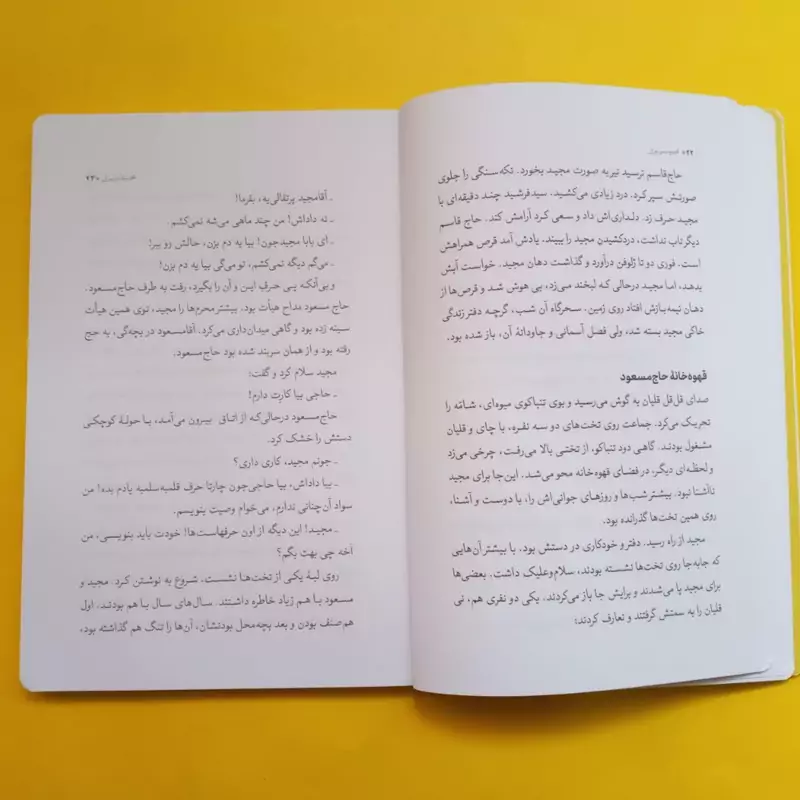 حاج‌قاسم نرسید تیر به صورت مجید بخورد. تکه‌سنگی را جلوی
صورتش سپر کرد. درد زیادی می‌کشید. سیدفرشید چند دقیقه‌ای با
مجید حرف زد. دلداری‌اش داد و سعی کرد آرامش کند. حاج قاسم
دیگر تاب نداشت، دردکشیدن مجید را ببیند. یادش آمد قرص همراهش
است. فوری دو تا ژلوفن درآورد و گذاشت دهان مجید. خواست آبش
بدهد، اما مجید درحالی که لبخند می‌زد، بی هوش شد و قرص‌ها از
دهان نیمه‌بازش افتاد روی زمین. سحرگاه آن شب، گرچه دفتر زندگی
خاکی مجید بسته شد، ولی فصل آسمانی و جاودانهٔ آن، باز شده بود.
قهوه‌خانهٔ حاج‌مسعود
صدای قل‌قل قلیان به گوش می‌رسید و بوی تنباکوی میوه‌ای، شامّه را
تحریک می‌کرد. جماعت روی تخت‌های دو سه نفره، با چای و قلیان
مشغول بودند. گاهی دود تنباکو، از تختی بالا می‌رفت، چرخی می‌زد
و لحظه‌ای دیگر، در فضای قهوه‌خانه محو می‌شد. این‌جا برای مجید
ناآشنا نبود. بیشتر شب‌ها و روزهای جوانی‌اش را، با دوست و آشنا،
روی همین تخت‌ها گذرانده بود.
مجید از راه رسید. دفتر و خودکاری در دستش بود. با بیشتر آن‌هایی
که جابه‌جا روی تخت‌ها نشسته بودند، سلام‌وعلیک داشت. بعضی‌ها
برای مجید پا می‌شدند و برایش جا باز می‌کردند. یکی دو نفری هم، نی
قلیان را به سمتش گرفتند و تعارف کردند:
ـ آقامجید پرتقالی‌یه، بفرما!
ـ نه داداش! من چند ماهی می‌شه نمی‌کشم.
ـ ای بابا مجیدجون! بیا یه دم بزن، حالش رو ببر!
ـ می‌گم دیگه نمی‌کشم، تو می‌گی بیا یه دم بزن!
و بی‌آنکه پی حرف این و آن را بگیرد، رفت به طرف حاج‌مسعود.
حاج مسعود مداح هیأت بود. بیشتر محرم‌ها را مجید، توی همین هیأت
سینه زده بود و گاهی میدان‌داری می‌کرد. آقامسعود در بچه‌گی، به حج
رفته بود و از همان سربند شده بود حاج‌مسعود.
مجید سلام کرد و گفت:
ـ حاجی بیا کارت دارم!
حاج‌مسعود درحالی‌که از اتاق بیرون می‌آمد، با حولهٔ کوچکی
دستش را خشک کرد.
ـ جونم مجید، کاری داری؟
ـ بیا داداش، بیا حاجی‌جون چارتا حرف قلمبه‌سلمبه یادم بده! من
سواد آن‌چنانی ندارم، می‌خوام وصیت بنویسم.
ـ مجید! این دیگه از اون حرفهاست‌ها! خودت باید بنویسی، من
آخه چی بهت بگم؟
روی لبهٔ یکی از تخت‌ها نشست. شروع به نوشتن کرد. مجید و
مسعود با هم زیاد خاطره داشتند. سال‌های سال با هم بودند. اول
هم‌صنف بودن و بعد بچه‌محل بودنشان، آن‌ها را تنگ هم گذاشته بود،